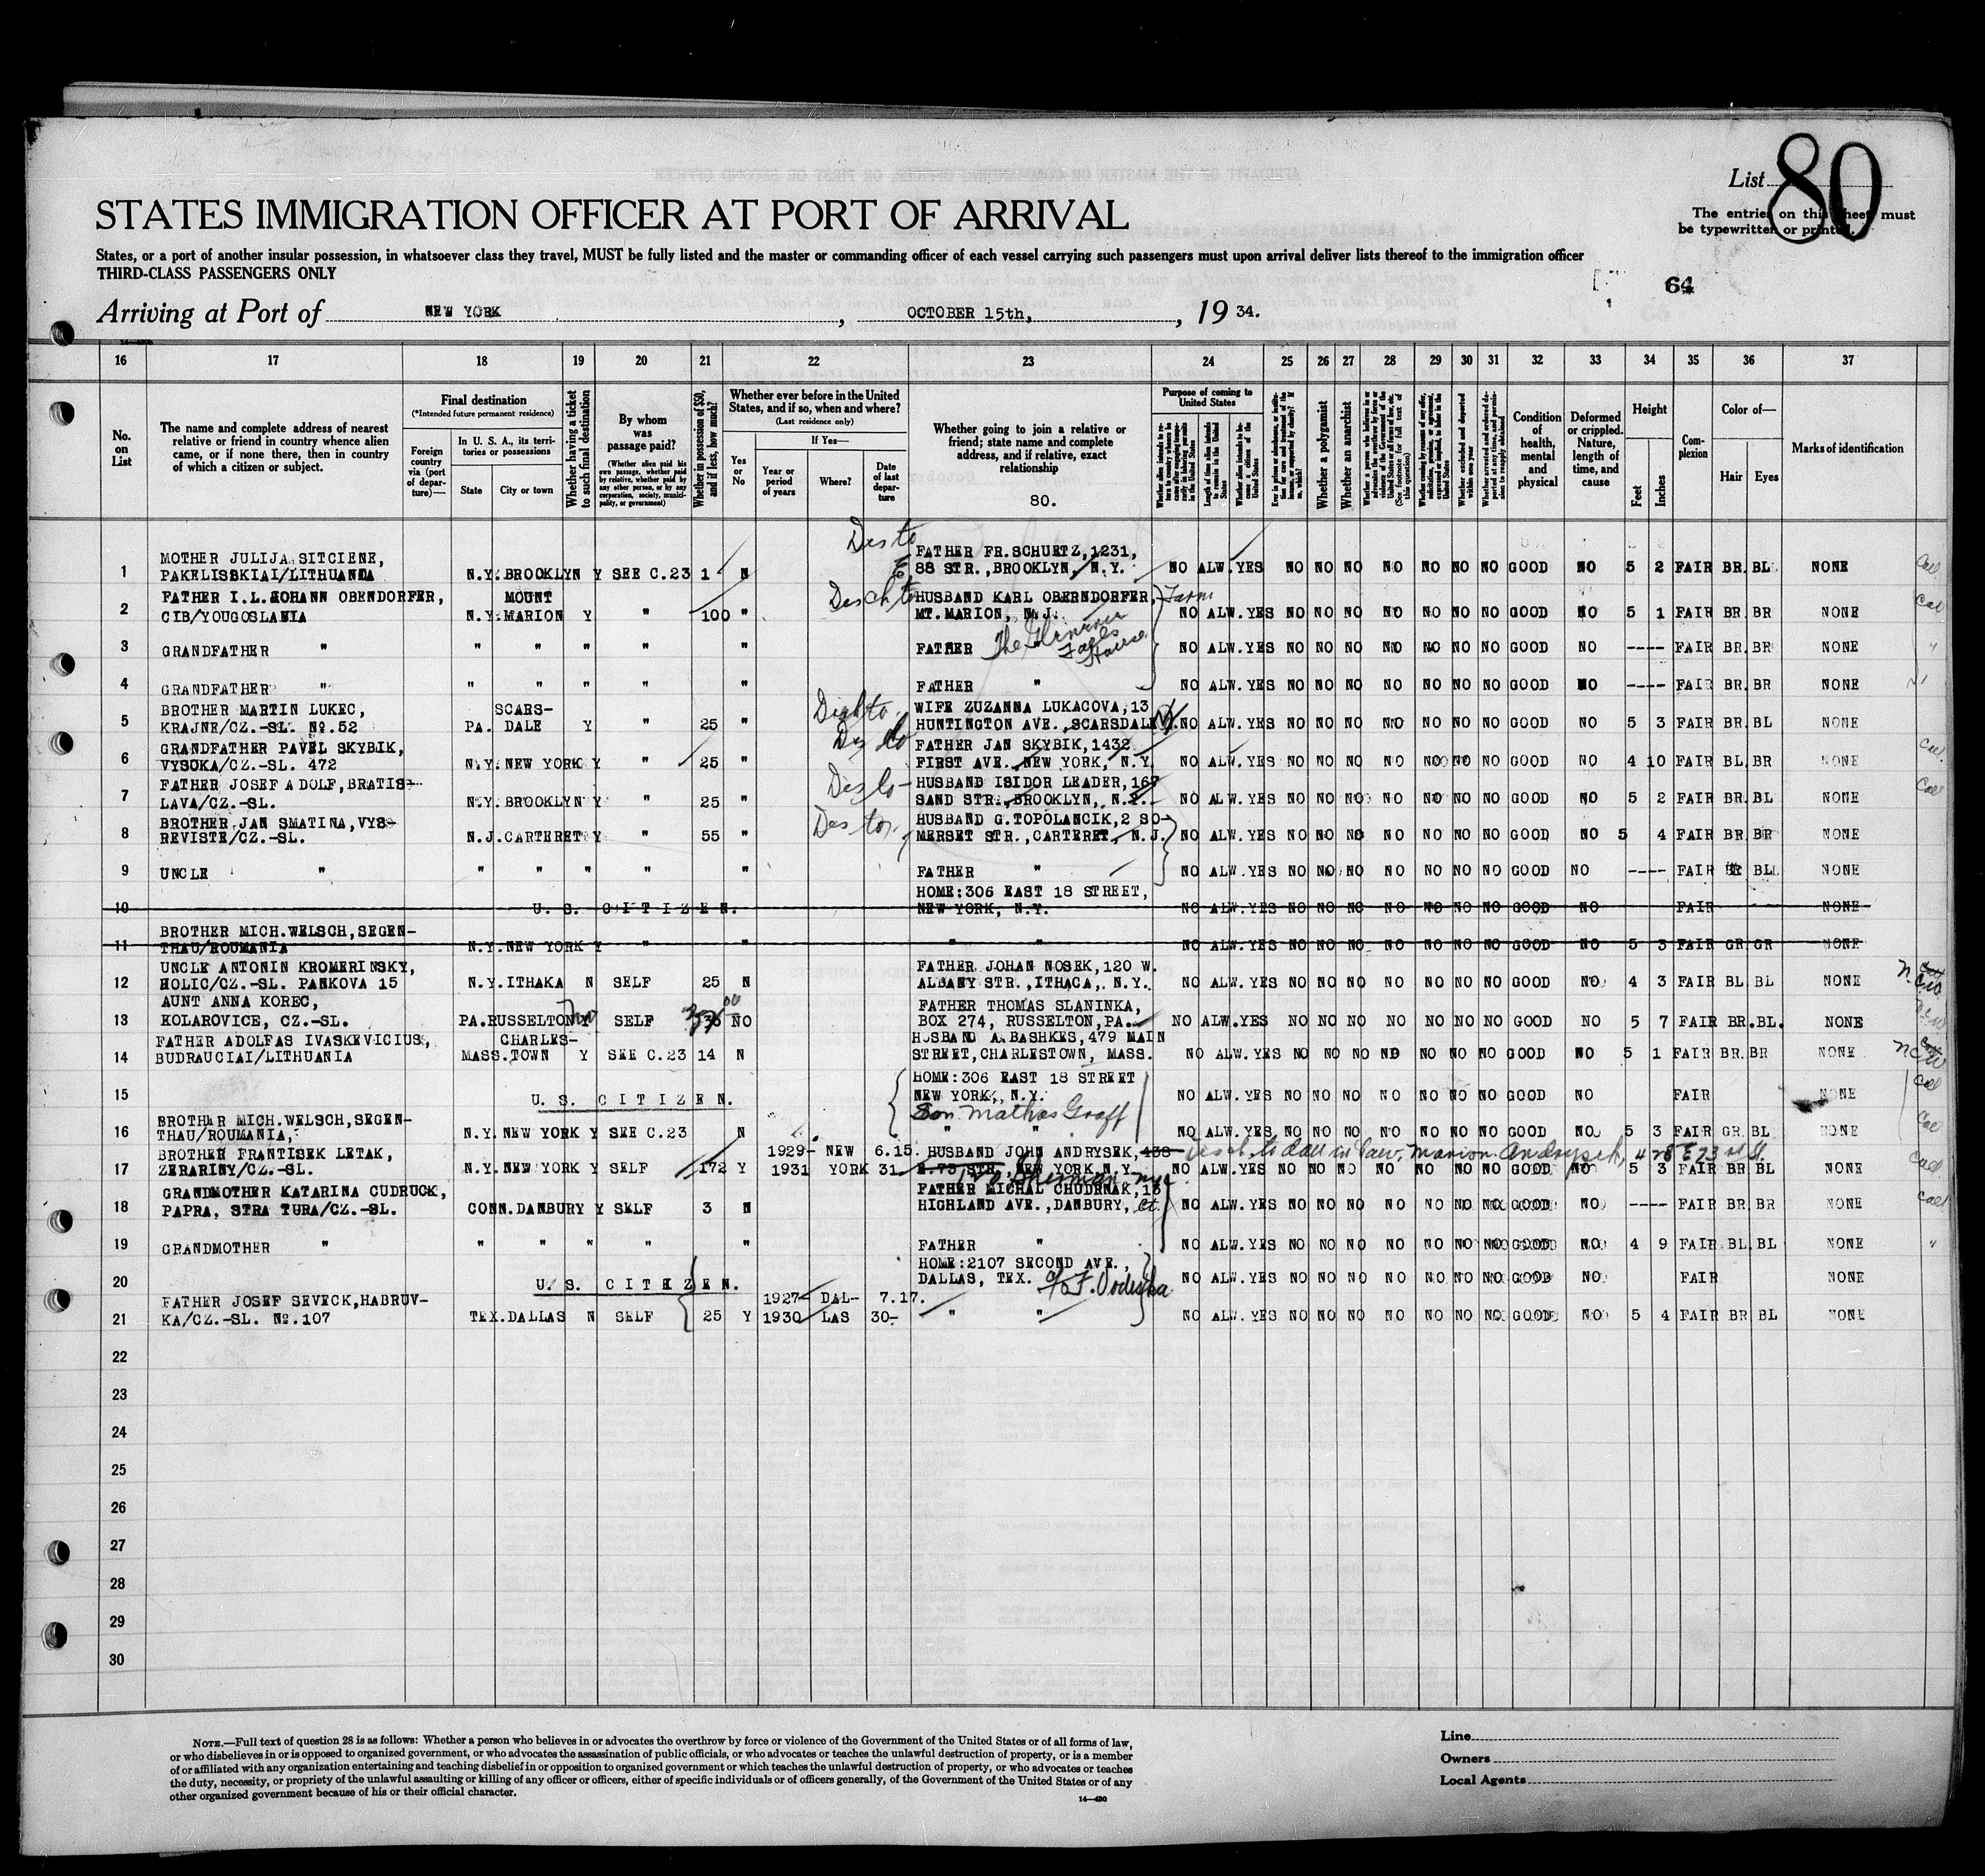 List 80
STATES IMMIGRATION OFFICER AT PORT OF ARRIVAL
The entries on this sheet must
be typewritten or printed.
States, or a port of another insular possession, in whatsoever class they travel, MUST be fully listed and the master or commanding officer of each vessel carrying such passengers must upon arrival deliver lists thereof to the immigration officer
THIRD-CLASS PASSENGERS ONLY
64
Arriving at Port of NEW YORK, OCTOBER 15th, 1934.
16 17 18 19 20 21 22 23 24 25 26 27 28 29 30 31 32 33 34 35 36 37
No. on List
The name and complete address of nearest relative or friend in country whence alien came, or if none there, then in country of which a citizen or subject.
Final destination
(*Intended future permanent residence)
Foreign country via (port of departure)—
In U. S. A., its territories or possessions
State City or town
Whether having a ticket to such final destination
By whom was passage paid?
(Whether alien paid his own passage, whether paid by relative, whether paid by any other person, or by any corporation, society, municipality, or government)
Whether in possession of $50, and if less, how much?
Whether ever before in the United States, and if so, when and where?
(Last residence only)
Yes or No
If Yes—
Year or period of years
Where?
Date of last departure
Whether going to join a relative or friend; state name and complete address, and if relative, exact relationship
80.
Purpose of coming to United States
Whether a polygamist
Whether an anarchist
Condition of health, mental and physical
Deformed or crippled. Nature, length of time, and cause
Height
Feet Inches
Complexion
Color of—
Hair Eyes
Marks of identification
MOTHER JULIJA SITCIENE, FATHER FR.SCHUETZ,1231,
1 PAKELISSKIAI/LITHUANIA N.Y. BROOKLYN Y SEE C.23 1 N 88 STR.,BROOKLYN, N.Y. NO ALW. YES NO NO NO NO NO NO NO GOOD NO 5 2 FAIR BR. BL NONE
FATHER I.L.JOHANN OBENDORFER, MOUNT HUSBAND KARL OBERNDORFER, Farm
2 CIB/YOUGOSLANIA N.Y. MARION Y " 100 " MT. MARION, N.J. NO ALW. YES NO NO NO NO NO NO NO GOOD NO 5 1 FAIR BR. BR NONE
3 GRANDFATHER " " " " " " FATHER " NO ALW. YES NO NO NO NO NO NO NO GOOD NO ---- FAIR BR. BR NONE
4 GRANDFATHER " " " " " FATHER " NO ALW. YES NO NO NO NO NO NO NO GOOD NO ---- FAIR BR. BR NONE
BROTHER MARTIN LUKEC, SCARS- WIFE ZUZANNA LUKACOVA,13
5 KRAJNE/CZ.-SL. No.52 PA. DALE Y " 25 " HUNTINGTON AVE.,SCARSDALE NO ALW. YES NO NO NO NO NO NO NO GOOD NO 5 3 FAIR BR. BL NONE
GRANDFATHER PAVEL SKYBIK, FATHER JAN SKYBIK,1432
6 VYSOKA/CZ.-SL. 472 N.Y. NEW YORK Y " 25 " FIRST AVE., NEW YORK, N.Y. NO ALW. YES NO NO NO NO NO NO NO GOOD NO 4 10 FAIR BL. BR NONE
FATHER JOSEF ADOLF, BRATIS- HUSBAND ISIDOR LEADER,167
7 LAVA/CZ.-SL. N.Y. BROOKLYN Y " 25 " SAND STR.,BROOKLYN, N.Y. NO ALW. YES NO NO NO NO NO NO NO GOOD NO 5 2 FAIR BR. BL NONE
BROTHER JAN SMATINA,VYS- HUSBAND G.TOPOLANCIK,2 SO-
8 REVISTE/CZ.-SL. N.J. CARTERET Y " 55 " MERSET STR.,CARTERET, N.J. NO ALW. YES NO NO NO NO NO NO NO GOOD NO 5 4 FAIR BR. BR NONE
9 UNCLE " " " " " " FATHER " NO ALW. YES NO NO NO NO NO NO NO GOOD NO ---- FAIR BL NONE
HOME:306 EAST 18 STREET,
10 U. S. CITIZEN. NEW YORK, N.Y. NO ALW. YES NO NO NO NO NO NO NO GOOD NO FAIR NONE
BROTHER MICH.WELSCH,SEGEN-
11 THAU/ROUMANIA N.Y. NEW YORK Y " " " " NO ALW. YES NO NO NO NO NO NO NO GOOD NO 5 3 FAIR GR. GR NONE
UNCLE ANTONIN KROMERINSKY, FATHER JOHAN NOSEK,120 W.
12 HOLIC/CZ.-SL. PANKOVA 15 N.Y. ITHAKA N SELF 25 N ALBANY STR.,ITHACA, N.Y. NO ALW. YES NO NO NO NO NO NO NO GOOD NO 4 3 FAIR BL. BL NONE
AUNT ANNA KOREC, FATHER THOMAS SLANINKA,
13 KOLAROVICE, CZ.-SL. PA. RUSSELTON SELF NO BOX 274, RUSSELTON,PA. NO ALW. YES NO NO NO NO NO NO NO GOOD NO 5 7 FAIR BR. BL. NONE
FATHER ADOLFAS IVASKEVICIUS, CHARLES- HUSBAND A.BASHKES,479 MAIN
14 BUDRAUCIAI/LITHUANIA MASS. TOWN Y SEE C.23 14 N STREET,CHARLESTOWN, MASS. NO ALW. YES NO NO NO NO NO NO NO GOOD NO 5 1 FAIR BR. BR NONE
HOME:306 EAST 18 STREET
15 U. S. CITIZEN. NEW YORK, N.Y. NO ALW. YES NO NO NO NO NO NO NO GOOD NO FAIR NONE
Son Mathias Graff
BROTHER MICH.WELSCH,SEGEN-
16 THAU/ROUMANIA, N.Y. NEW YORK Y SEE C.23 N " " NO ALW. YES NO NO NO NO NO NO NO GOOD NO 5 3 FAIR GR. BL NONE
BROTHER FRANTISEK LETAK, 1929- NEW 6.15. HUSBAND JOHN ANDRYSEK,438
17 ZERARINY/CZ.-SL. N.Y. NEW YORK Y SELF 172 Y 1931 YORK 31 E.73 STR., NEW YORK N.Y. NO ALW. YES NO NO NO NO NO NO NO GOOD NO 5 3 FAIR BR BL NONE
GRANDMOTHER KATARINA CUDRUCK, FATHER MICHAL CHUDRNAK,13
18 PAPRA, STRA TURA/CZ.-SL. CONN. DANBURY Y SELF 3 N HIGHLAND AVE.,DANBURY, Ct. NO ALW. YES NO NO NO NO NO NO NO GOOD NO ---- FAIR BR. BR NONE
19 GRANDMOTHER " " " " " " FATHER " NO ALW. YES NO NO NO NO NO NO NO GOOD NO 4 9 FAIR BL. BL NONE
HOME:2107 SECOND AVE.,
20 U. S. CITIZEN. DALLAS, TEX. NO ALW. YES NO NO NO NO NO NO NO GOOD NO FAIR NONE
FATHER JOSEF SEVECK,HABRUV- 1927- DAL- 7.17.
21 KA/CZ.-SL. No.107 TEX. DALLAS N SELF 25 Y 1930 LAS 30- " " NO ALW. YES NO NO NO NO NO NO NO GOOD NO 5 4 FAIR BR BL NONE
22
23
24
25
26
27
28
29
30
NOTE.—Full text of question 28 is as follows: Whether a person who believes in or advocates the overthrow by force or violence of the Government of the United States or of all forms of law,
or who disbelieves in or is opposed to organized government, or who advocates the assassination of public officials, or who advocates or teaches the unlawful destruction of property, or is a member
of or affiliated with any organization entertaining and teaching disbelief in or opposition to organized government or which teaches the unlawful destruction of property, or who advocates or teaches
the duty, necessity, or propriety of the unlawful assaulting or killing of any officer or officers, either of specific individuals or of officers generally, of the Government of the United States or of any
other organized government because of his or their official character.
14—480
Line
Owners
Local Agents